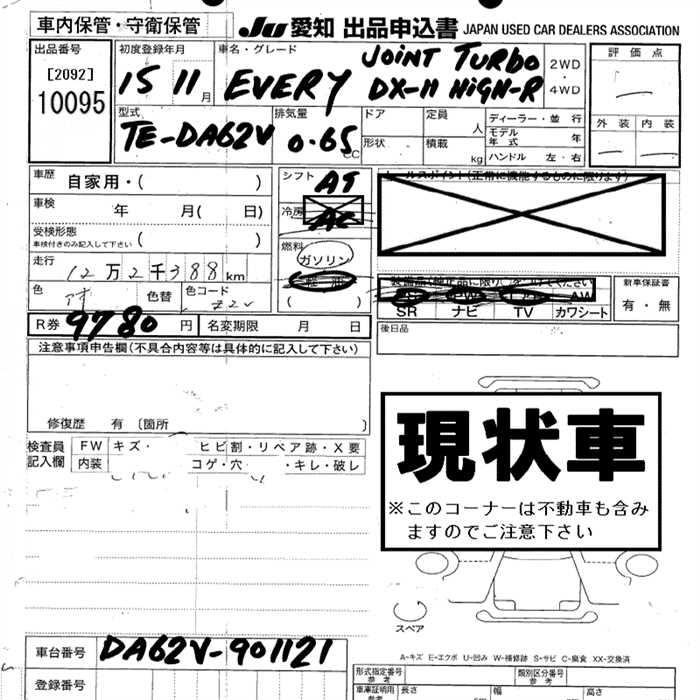 車内保管・守衛保管
JU 愛知 出品申込書 JAPAN USED CAR DEALERS ASSOCIATION
出品番号
[2092]
10095
初度登録年月
15 11月
車名・グレード
EVERY
JOINT TURBO
DX-H HIGH-R
2WD
・
4WD
評価点
外装 内装
型式
TE-DA62V
排気量
0.65
CC
ドア
定員
人
形状
積載
kg
ディーラー・並行
モデル
年式
ハンドル 左・右
車歴
自家用・( )
車検
年 月( 日)
受検形態
車検付きのみ記入して下さい ( )
走行
12万2千388km
色
色替
色コード
Z2V
R券 9780 円
名変期限 月 日
シフト AT
冷房 AC
燃料
ガソリン
軽油
( )
セールスポイント(正常に機能するものに限ります)
装備品(純正品に限り○をしてください)
AW
SR ナビ TV カワシート
新車保証書
有・無
後日品
注意事項申告欄(不具合内容等は具体的に記入して下さい)
修復歴 有〔箇所 〕
検査員
記入欄
FW キズ・ ヒビ割・リペア跡・X要
内装 コゲ・穴 ・キレ・破レ
現状車
※このコーナーは不動車も含み
ますのでご注意下さい
スペア
A-キズ E-エクボ U-凹み W-補修跡 S-サビ C-腐食 XX-交換済
車台番号 DA62V-901121
登録番号
形式指定番号
参考
類別区分番号
参考
車庫証明用
参考
長さ 幅 高さ